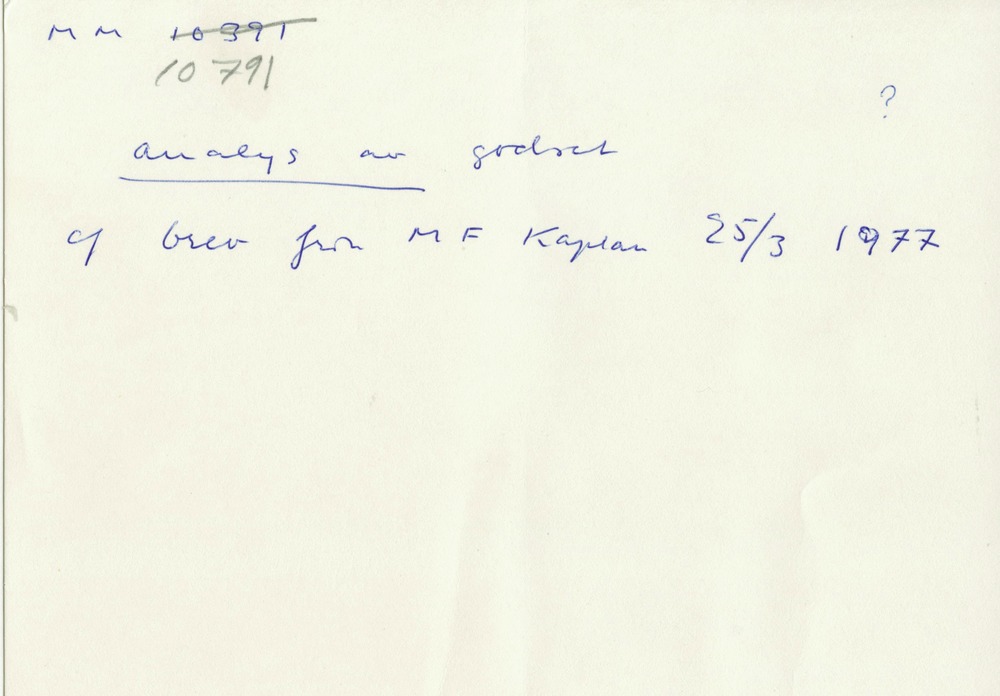 MM 10391
10791
?
analys av godset
cf brev från MF Kaplan 25/3 1977